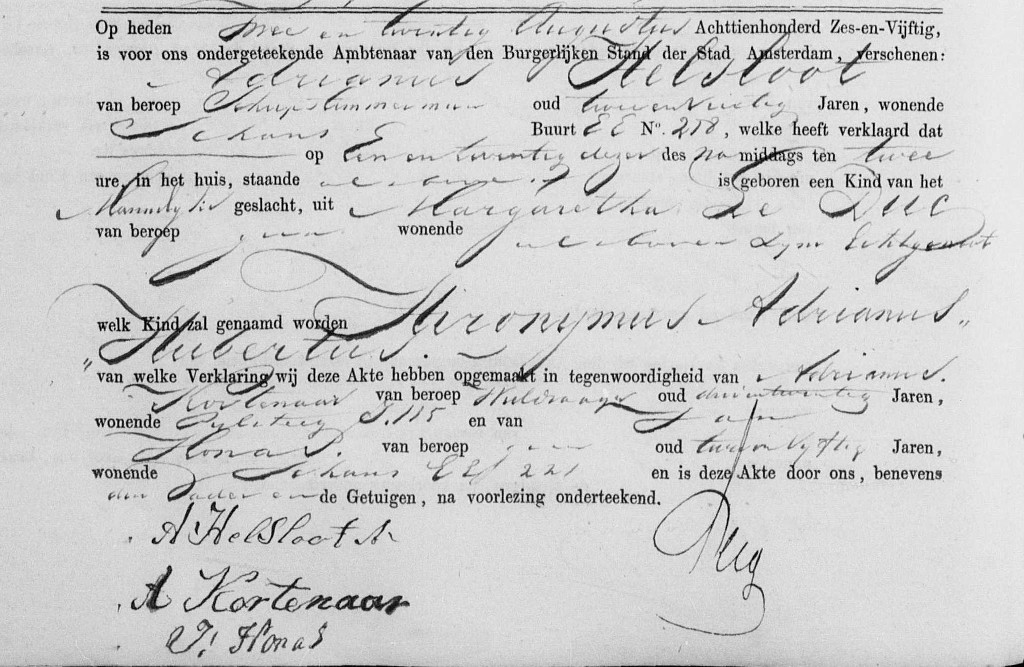 Op heden twee en twintig Augustus Achttienhonderd Zes-en-Vijftig,
is voor ons ondergeteekende Ambtenaar van den Burgerlijken Stand der Stad Amsterdam, verschenen:
Adrianus Helsloot
van beroep Scheepstimmerman oud tweeenveertig Jaren, wonende
Schans E Buurt EE No. 218, welke heeft verklaard dat
op Een en twintig dezer des na middags ten twee
ure, in het huis, staande is geboren een Kind van het
Mannelyke geslacht, uit Margaretha Le Duc
van beroep geen wonende als boven Zyne Echtgenoot
welk Kind zal genaamd worden Hieronymus Adrianus
„Hubertus.
van welke Verklaring wij deze Akte hebben opgemaakt in tegenwoordigheid van Adrianus
Kortenaar van beroep oud drieentwintig Jaren,
wonende S. 115 en van Jan
Honas. van beroep geen oud tweeenvyftig Jaren,
wonende Schans EE 221 en is deze Akte door ons, benevens
den Vader en de Getuigen, na voorlezing onderteekend.
A Helsloot
A Kortenaar
J: Honas